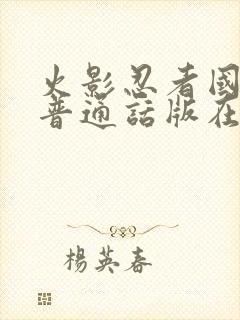 火影忍者國
普通話版在
楊英春